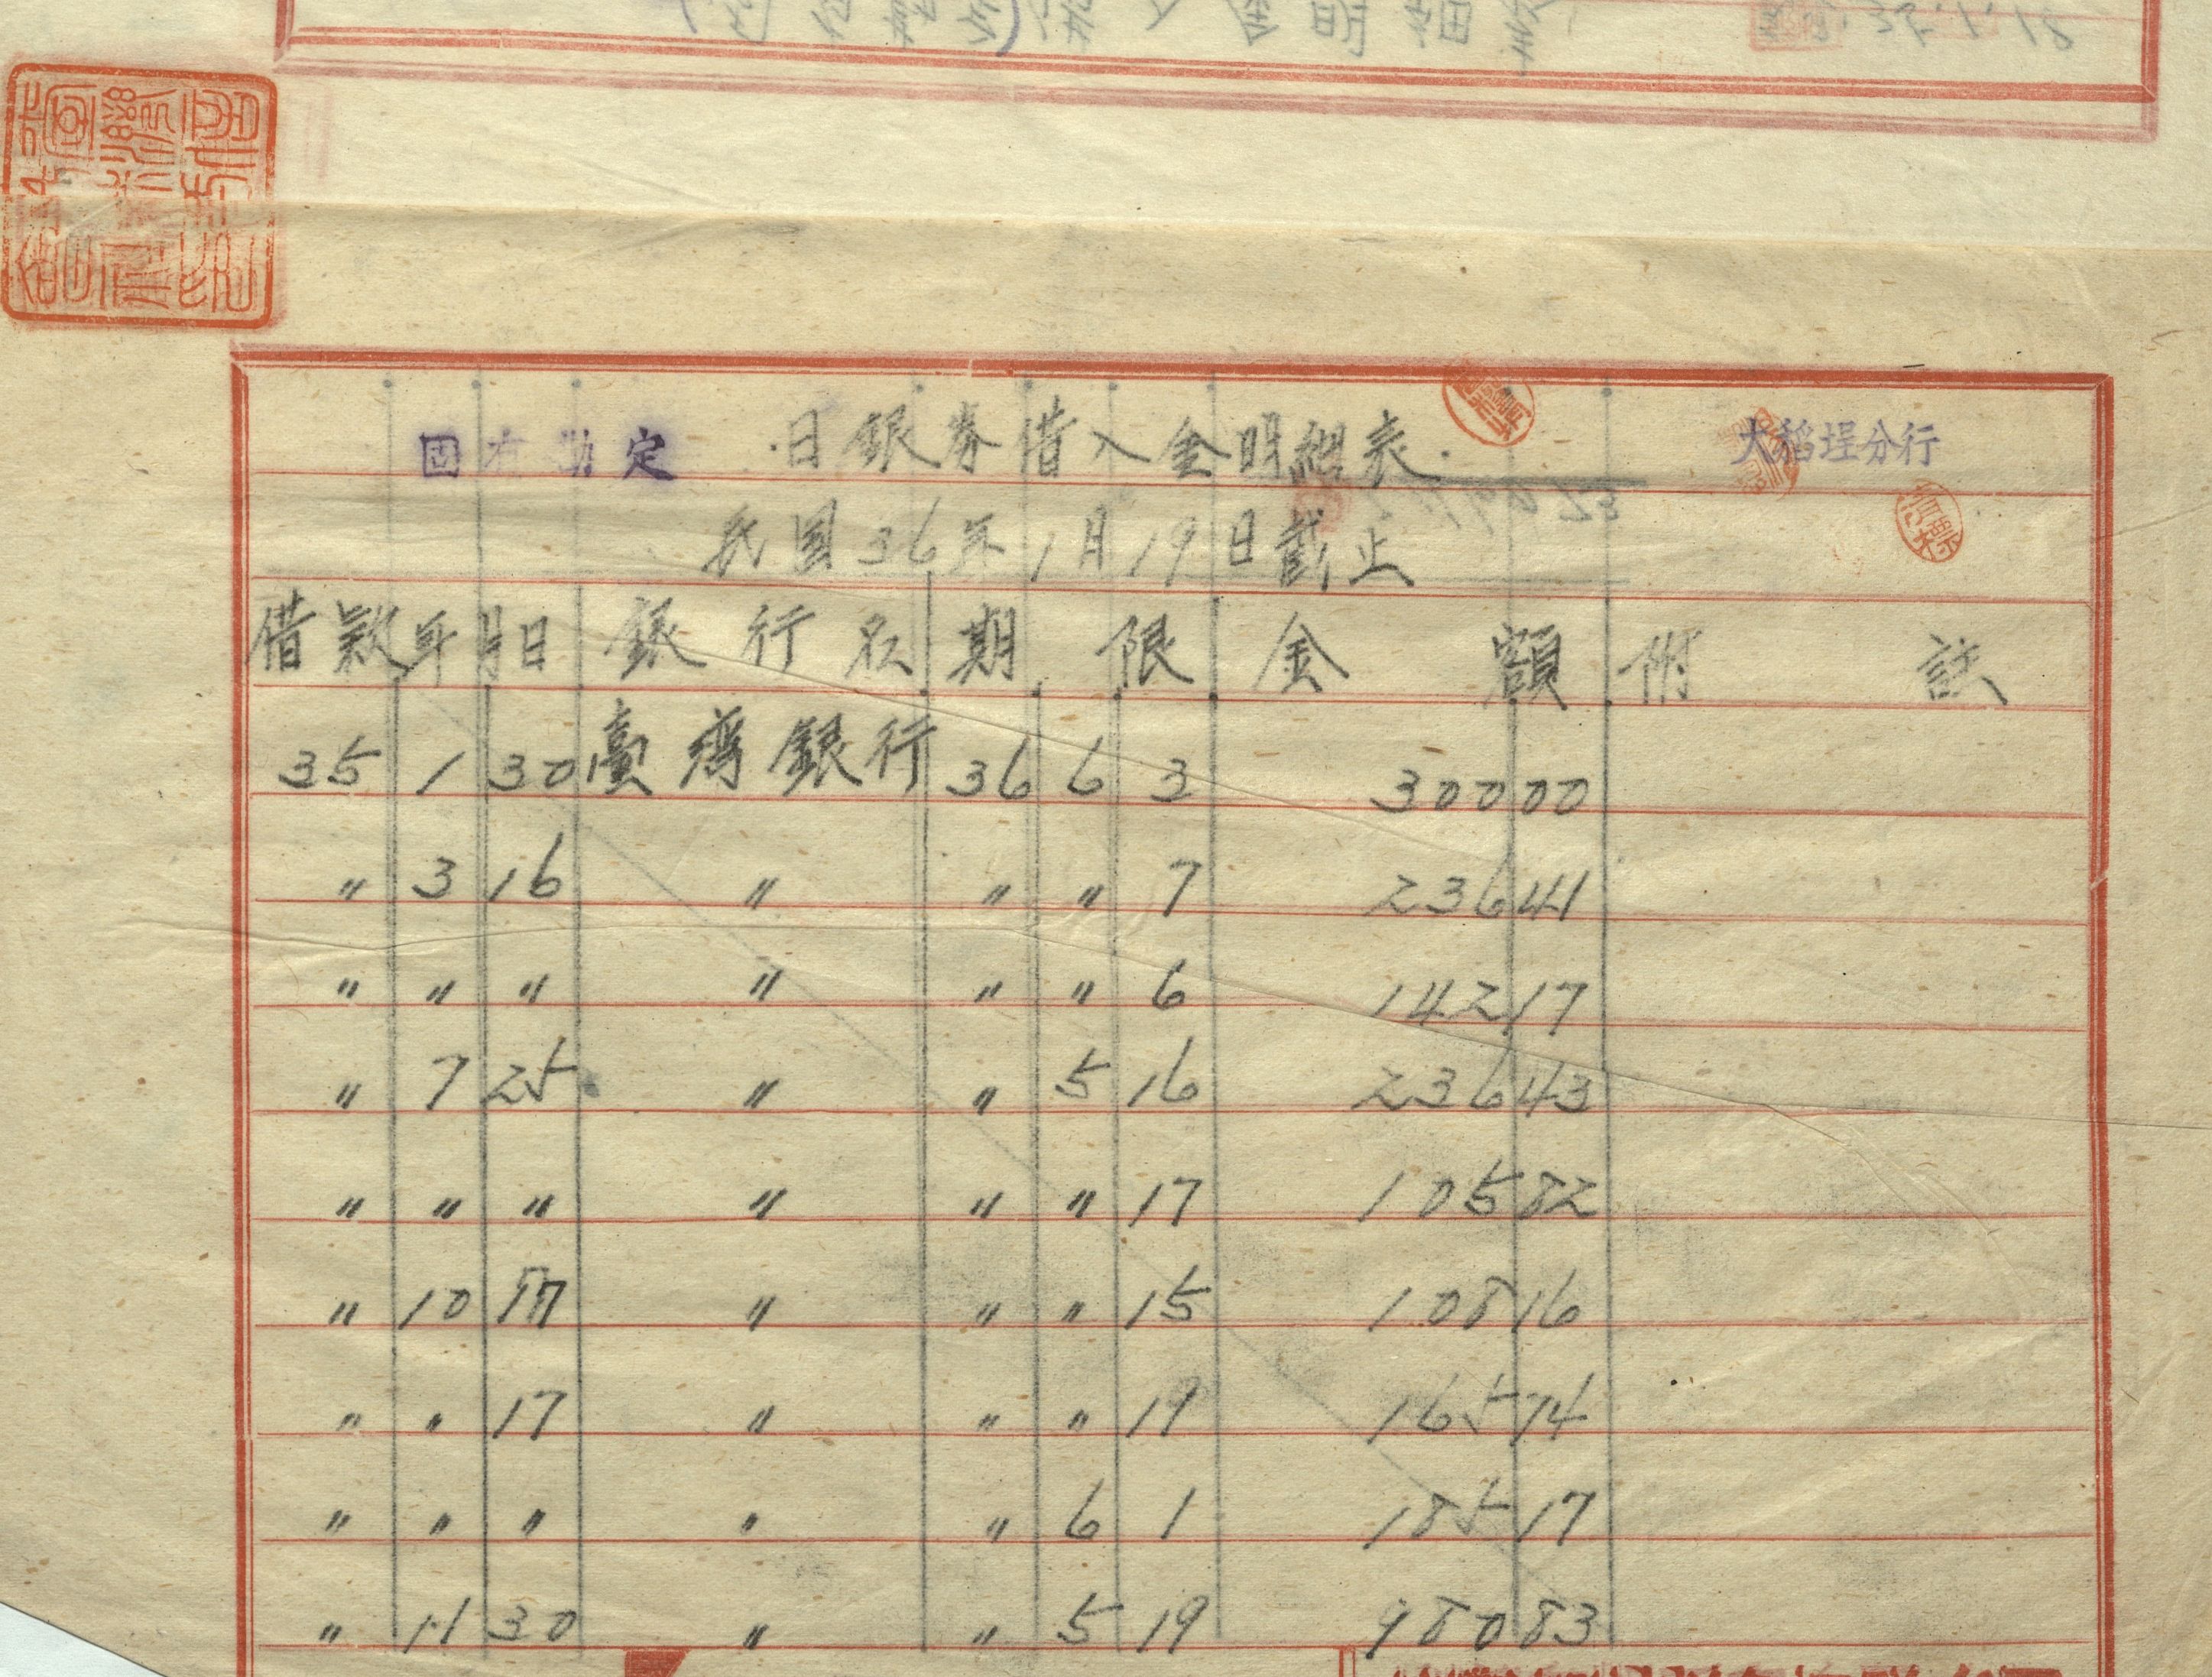 固有勘定 日銀券借入金明細表 大稻埕分行
民国36年1月19日截止
借款年月日 銀行名 期限 金額 附註
35 1 30 臺灣銀行 36 6 3 300 00
〃 3 16 〃 〃 〃 7 236 41
〃 〃 〃 〃 〃 〃 6 142 17
〃 7 25 〃 〃 5 16 236 43
〃 〃 〃 〃 〃 〃 17 105 82
〃 10 17 〃 〃 〃 15 108 16
〃 〃 17 〃 〃 〃 19 165 74
〃 〃 〃 〃 〃 6 1 185 17
〃 11 30 〃 〃 5 19 980 83